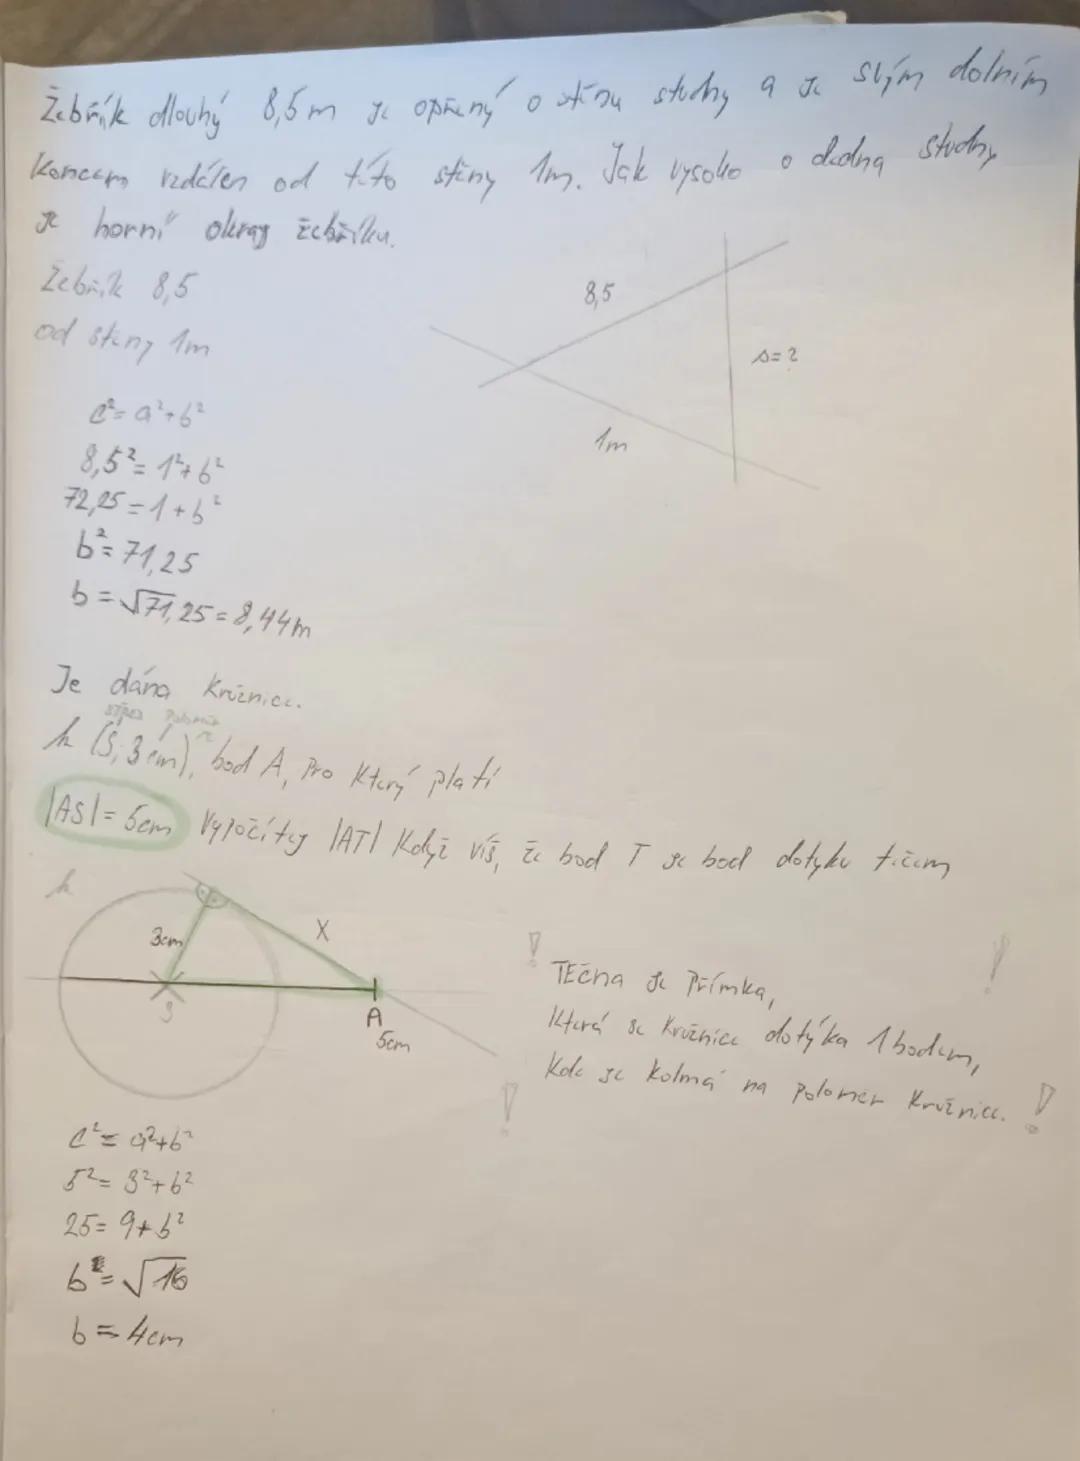 Žebřík dlouhý 8,5 m je opřený o stěnu studny a je svým dolním
koncem vzdálen od této stěny 1m. Jak vysoko o dna studny
je horní okraj žebříku.
Žebřík 8,5
od stěny 1m
8,5
s=?
1m
c²=a²+b²
8,5²=1²+b²
72,25=1+b²
b²=71,25
b=√71,25=8,44m
Je dána kružnice.
střed poloměr
k (S; 3cm), bod A, pro který platí
|AS|=5cm Vypočítej |AT| Když víš, že bod T je bod dotyku tečen
k
3cm
X
S
A
5cm
! TEčna je přímka, !
Která se Kružnice dotýká 1bodem,
Kde je kolmá na poloměr kružnice.
! !
c²=a²+b²
5²=3²+b²
25=9+b²
b=√16
b=4cm